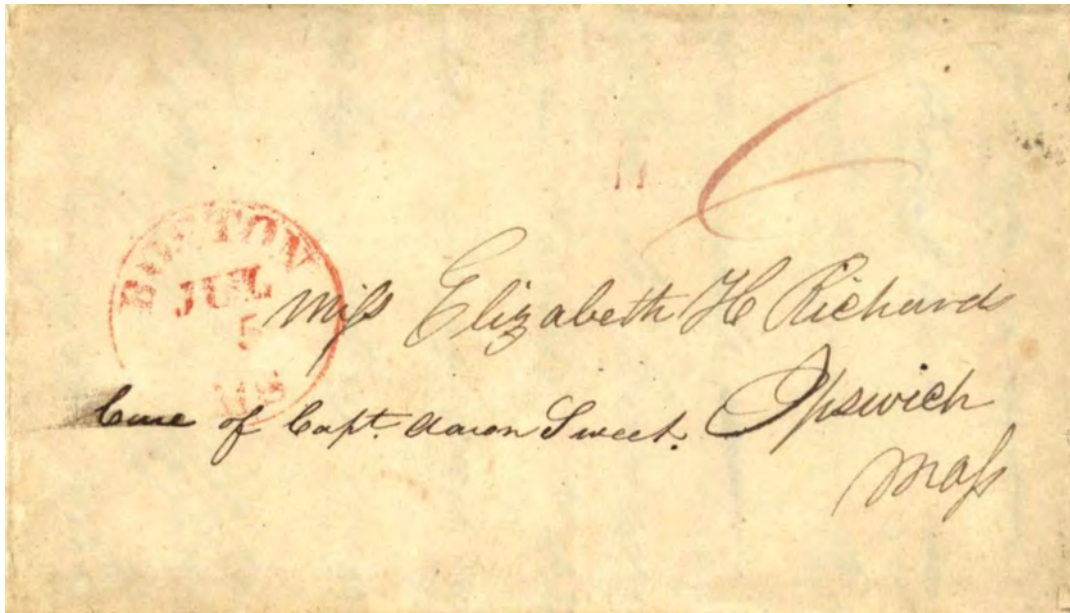 6
BOSTON
JUL
5
MS
Miss Elizabeth H Richards
Care of Capt. Aaron Sweet. Ipswich
Mass